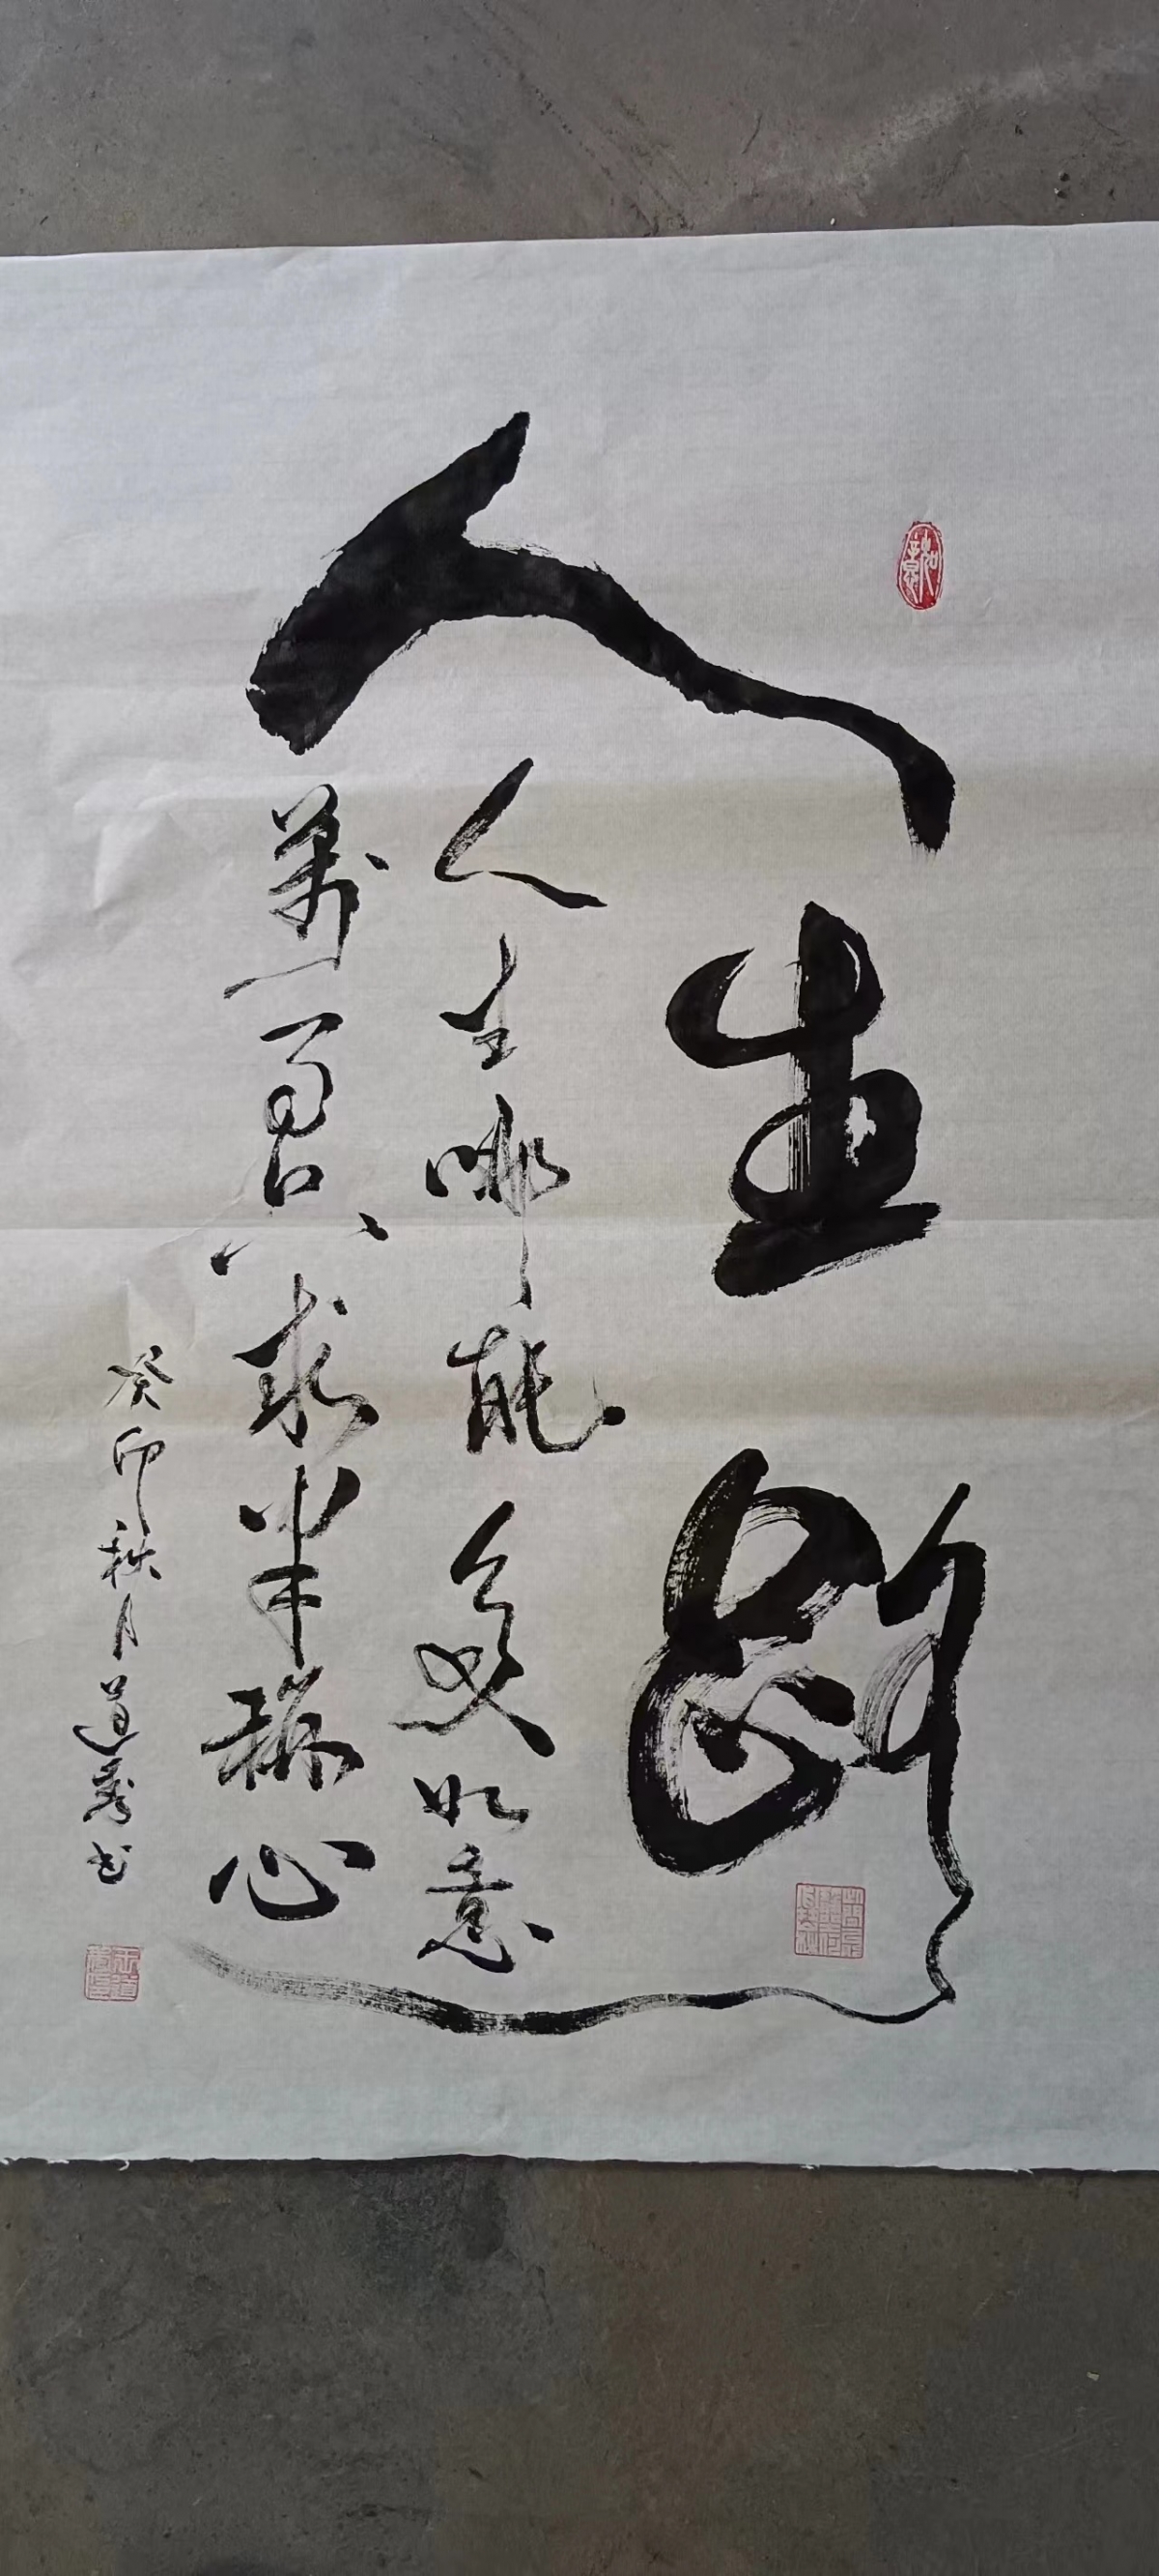 人生
人生哪能多如意
萬事只求半稱心
癸卯秋月道书